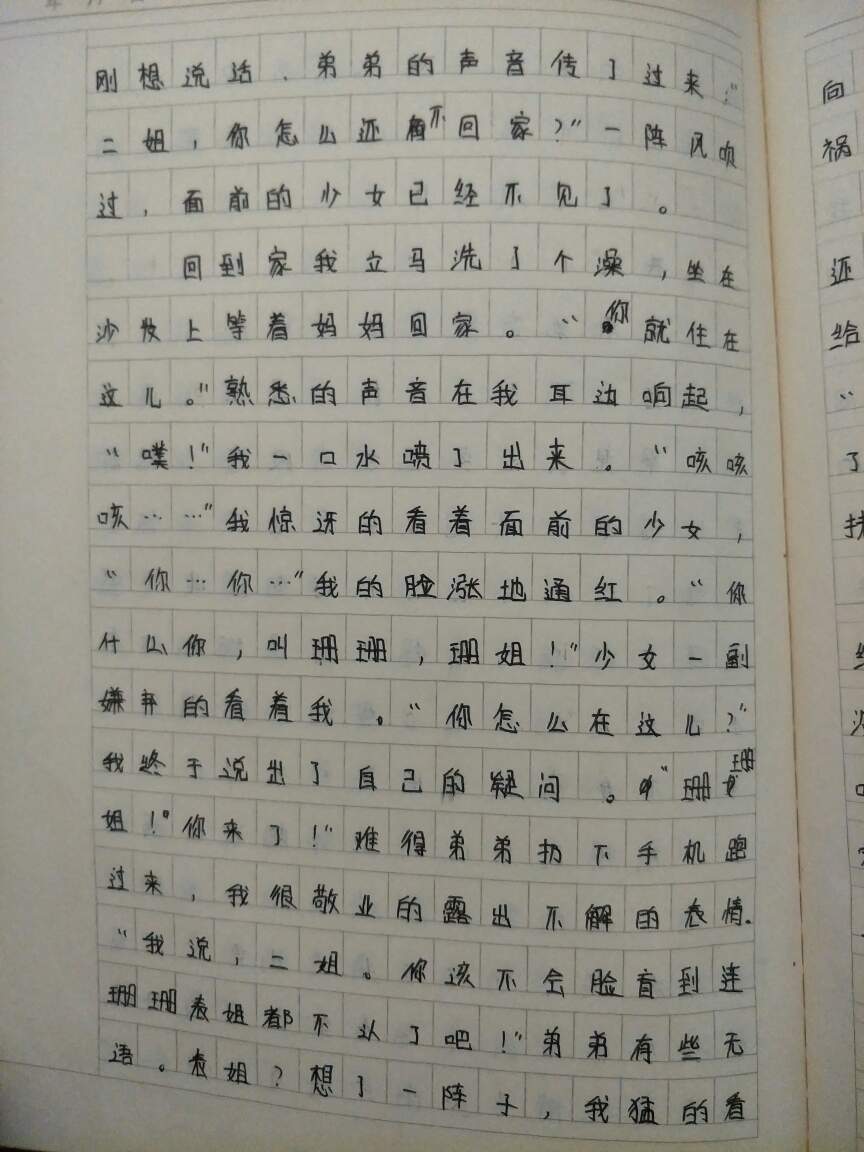 刚想说话，弟弟的声音传了过来："
二姐，你怎么还不回家？"一阵风吹
过，面前的少女已经不见了。
回到家我立马洗了个澡，坐在
沙发上等着妈妈回家。"你就住在
这儿。"熟悉的声音在我耳边响起，
"噗！"我一口水喷了出来。"咳咳
咳……"我惊讶的看着面前的少女，
"你…你…"我的脸涨地通红。"你
什么你，叫珊珊，珊姐！"少女一副
嫌弃的看着我。"你怎么在这儿？"
我终于说出了自己的疑问。"珊珊
姐！你来了！"难得弟弟扔下手机跑
过来，我很敬业的露出不解的表情。
"我说，二姐。你该不会脸盲到连
珊珊表姐都不认了吧！"弟弟有些无
语。表姐？想了一阵子，我猛的看
向
祸
还
给
"
了